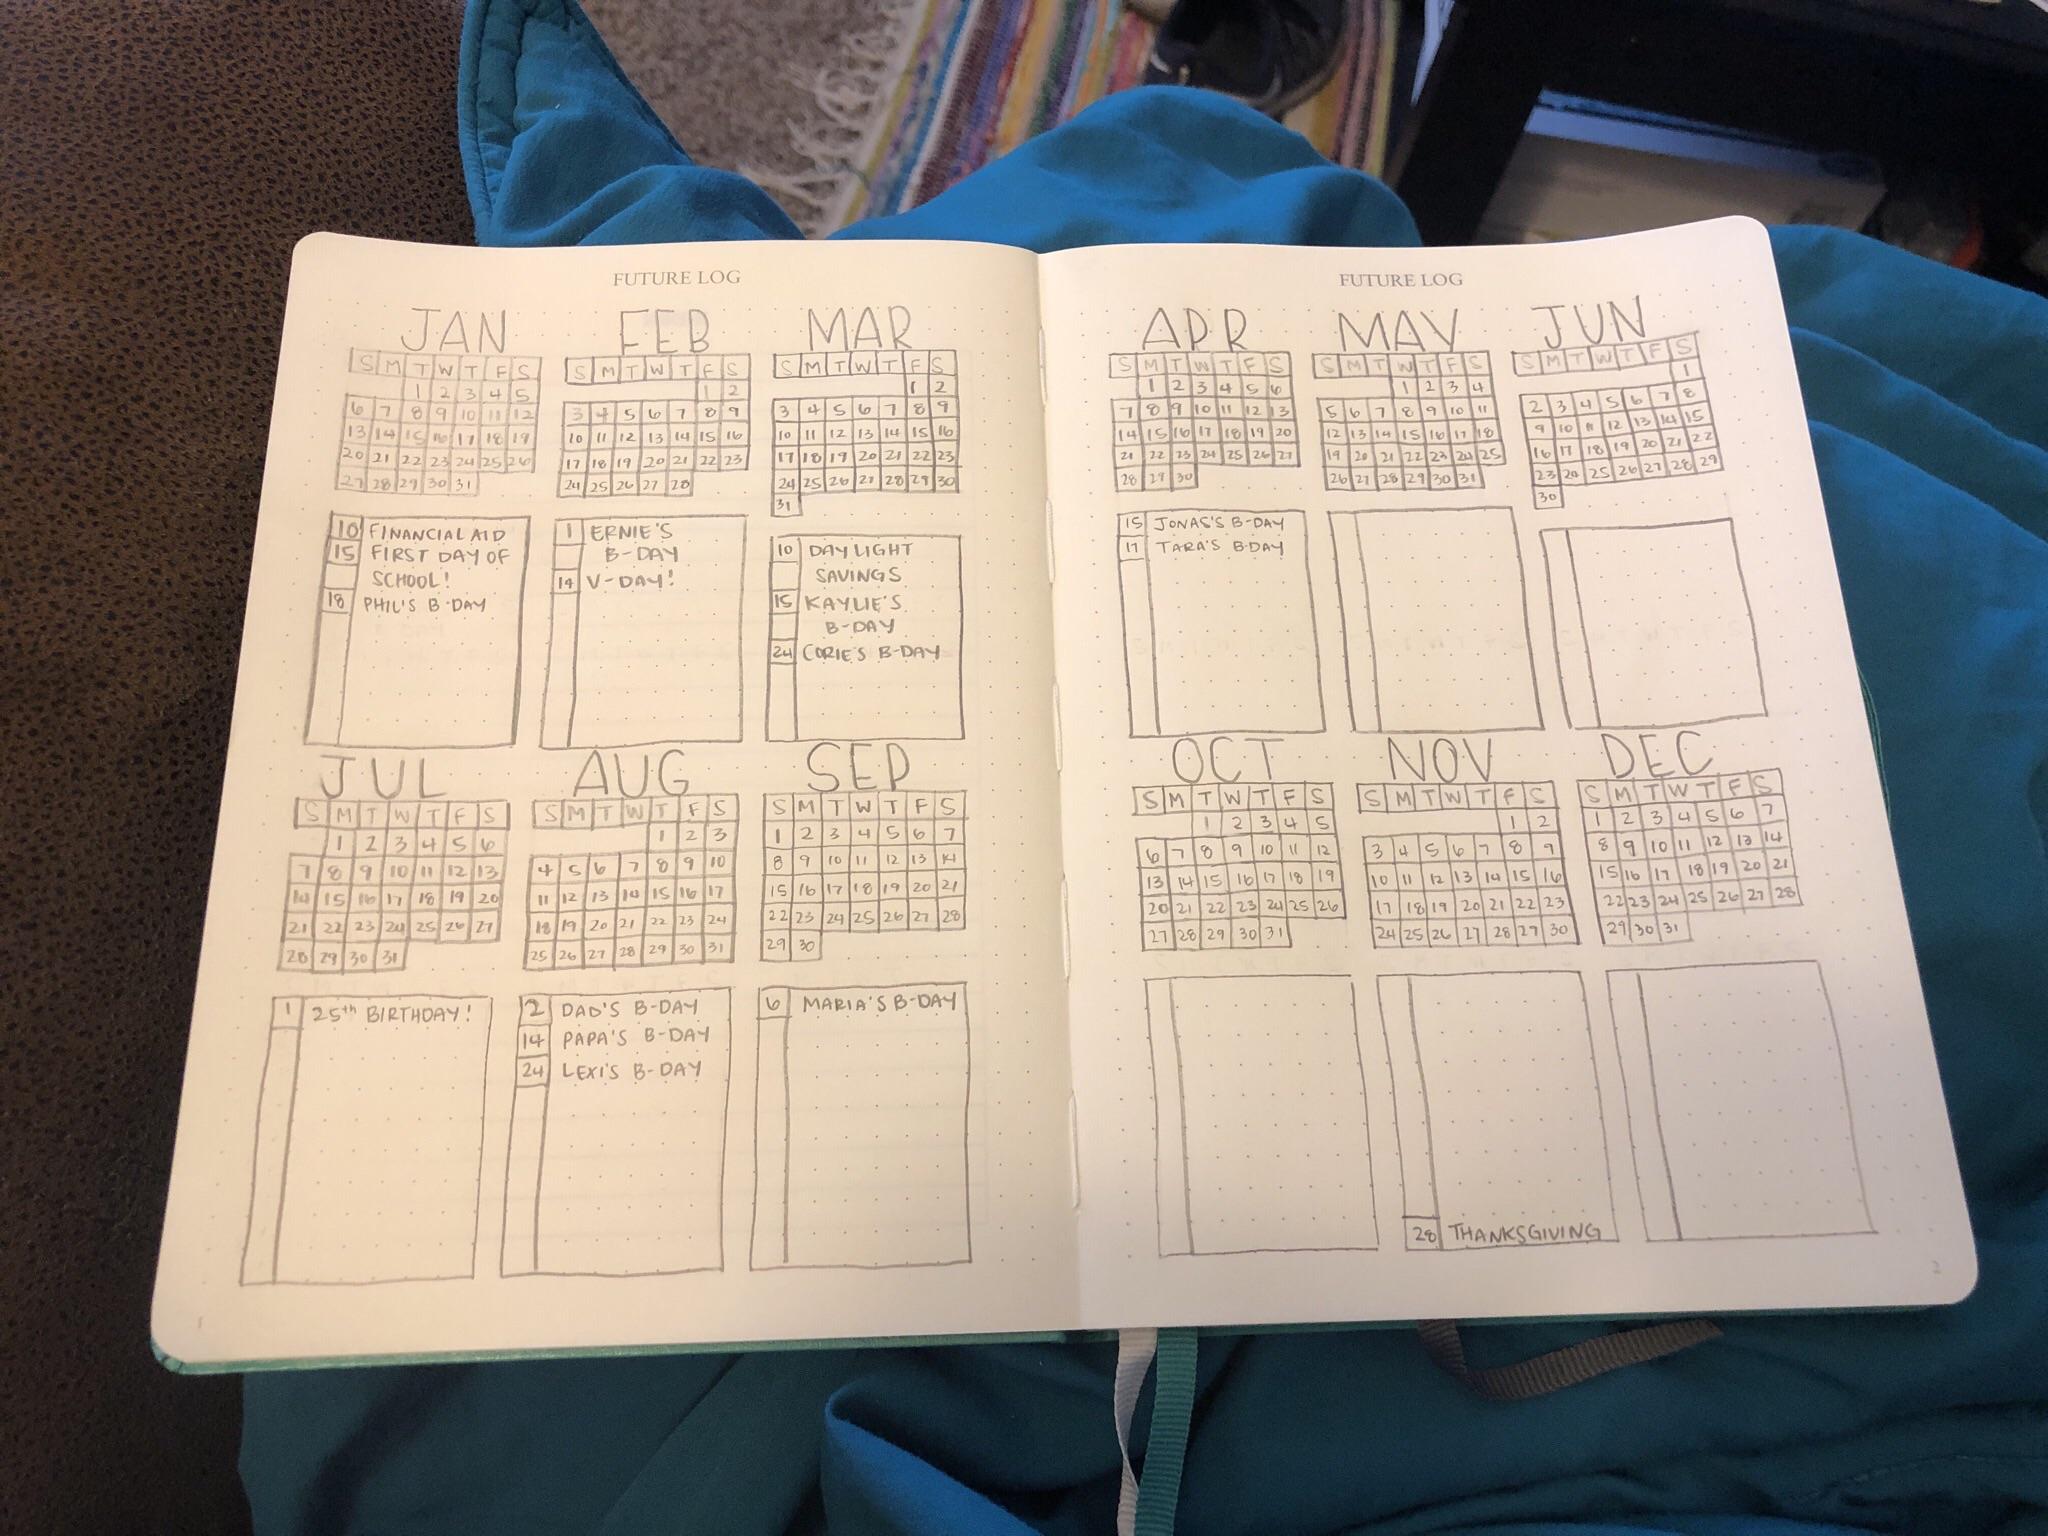 FUTURE LOG
JAN
S M T W T F S
1 2 3 4 5
6 7 8 9 10 11 12
13 14 15 16 17 18 19
20 21 22 23 24 25 26
27 28 29 30 31
10 FINANCIAL AID
15 FIRST DAY OF
SCHOOL!
18 PHIL'S B-DAY
FEB
S M T W T F S
1 2
3 4 5 6 7 8 9
10 11 12 13 14 15 16
17 18 19 20 21 22 23
24 25 26 27 28
1 ERNIE'S
B-DAY
14 V-DAY!
MAR
S M T W T F S
1 2
3 4 5 6 7 8 9
10 11 12 13 14 15 16
17 18 19 20 21 22 23
24 25 26 27 28 29 30
31
10 DAYLIGHT
SAVINGS
15 KAYLIE'S
B-DAY
24 CORIE'S B-DAY
JUL
S M T W T F S
1 2 3 4 5 6
7 8 9 10 11 12 13
14 15 16 17 18 19 20
21 22 23 24 25 26 27
28 29 30 31
1 25th BIRTHDAY!
AUG
S M T W T F S
1 2 3
4 5 6 7 8 9 10
11 12 13 14 15 16 17
18 19 20 21 22 23 24
25 26 27 28 29 30 31
2 DAD'S B-DAY
14 PAPA'S B-DAY
24 LEXI'S B-DAY
SEP
S M T W T F S
1 2 3 4 5 6 7
8 9 10 11 12 13 14
15 16 17 18 19 20 21
22 23 24 25 26 27 28
29 30
6 MARIA'S B-DAY
1
FUTURE LOG
APR
S M T W T F S
1 2 3 4 5 6
7 8 9 10 11 12 13
14 15 16 17 18 19 20
21 22 23 24 25 26 27
28 29 30
15 JONAS'S B-DAY
17 TARA'S B-DAY
MAY
S M T W T F S
1 2 3 4
5 6 7 8 9 10 11
12 13 14 15 16 17 18
19 20 21 22 23 24 25
26 27 28 29 30 31
JUN
S M T W T F S
1
2 3 4 5 6 7 8
9 10 11 12 13 14 15
16 17 18 19 20 21 22
23 24 25 26 27 28 29
30
OCT
S M T W T F S
1 2 3 4 5
6 7 8 9 10 11 12
13 14 15 16 17 18 19
20 21 22 23 24 25 26
27 28 29 30 31
NOV
S M T W T F S
1 2
3 4 5 6 7 8 9
10 11 12 13 14 15 16
17 18 19 20 21 22 23
24 25 26 27 28 29 30
28 THANKSGIVING
DEC
S M T W T F S
1 2 3 4 5 6 7
8 9 10 11 12 13 14
15 16 17 18 19 20 21
22 23 24 25 26 27 28
29 30 31
2